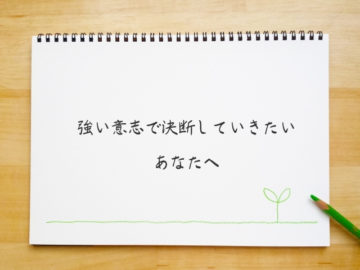 強い意志で決断していきたい
あなたへ